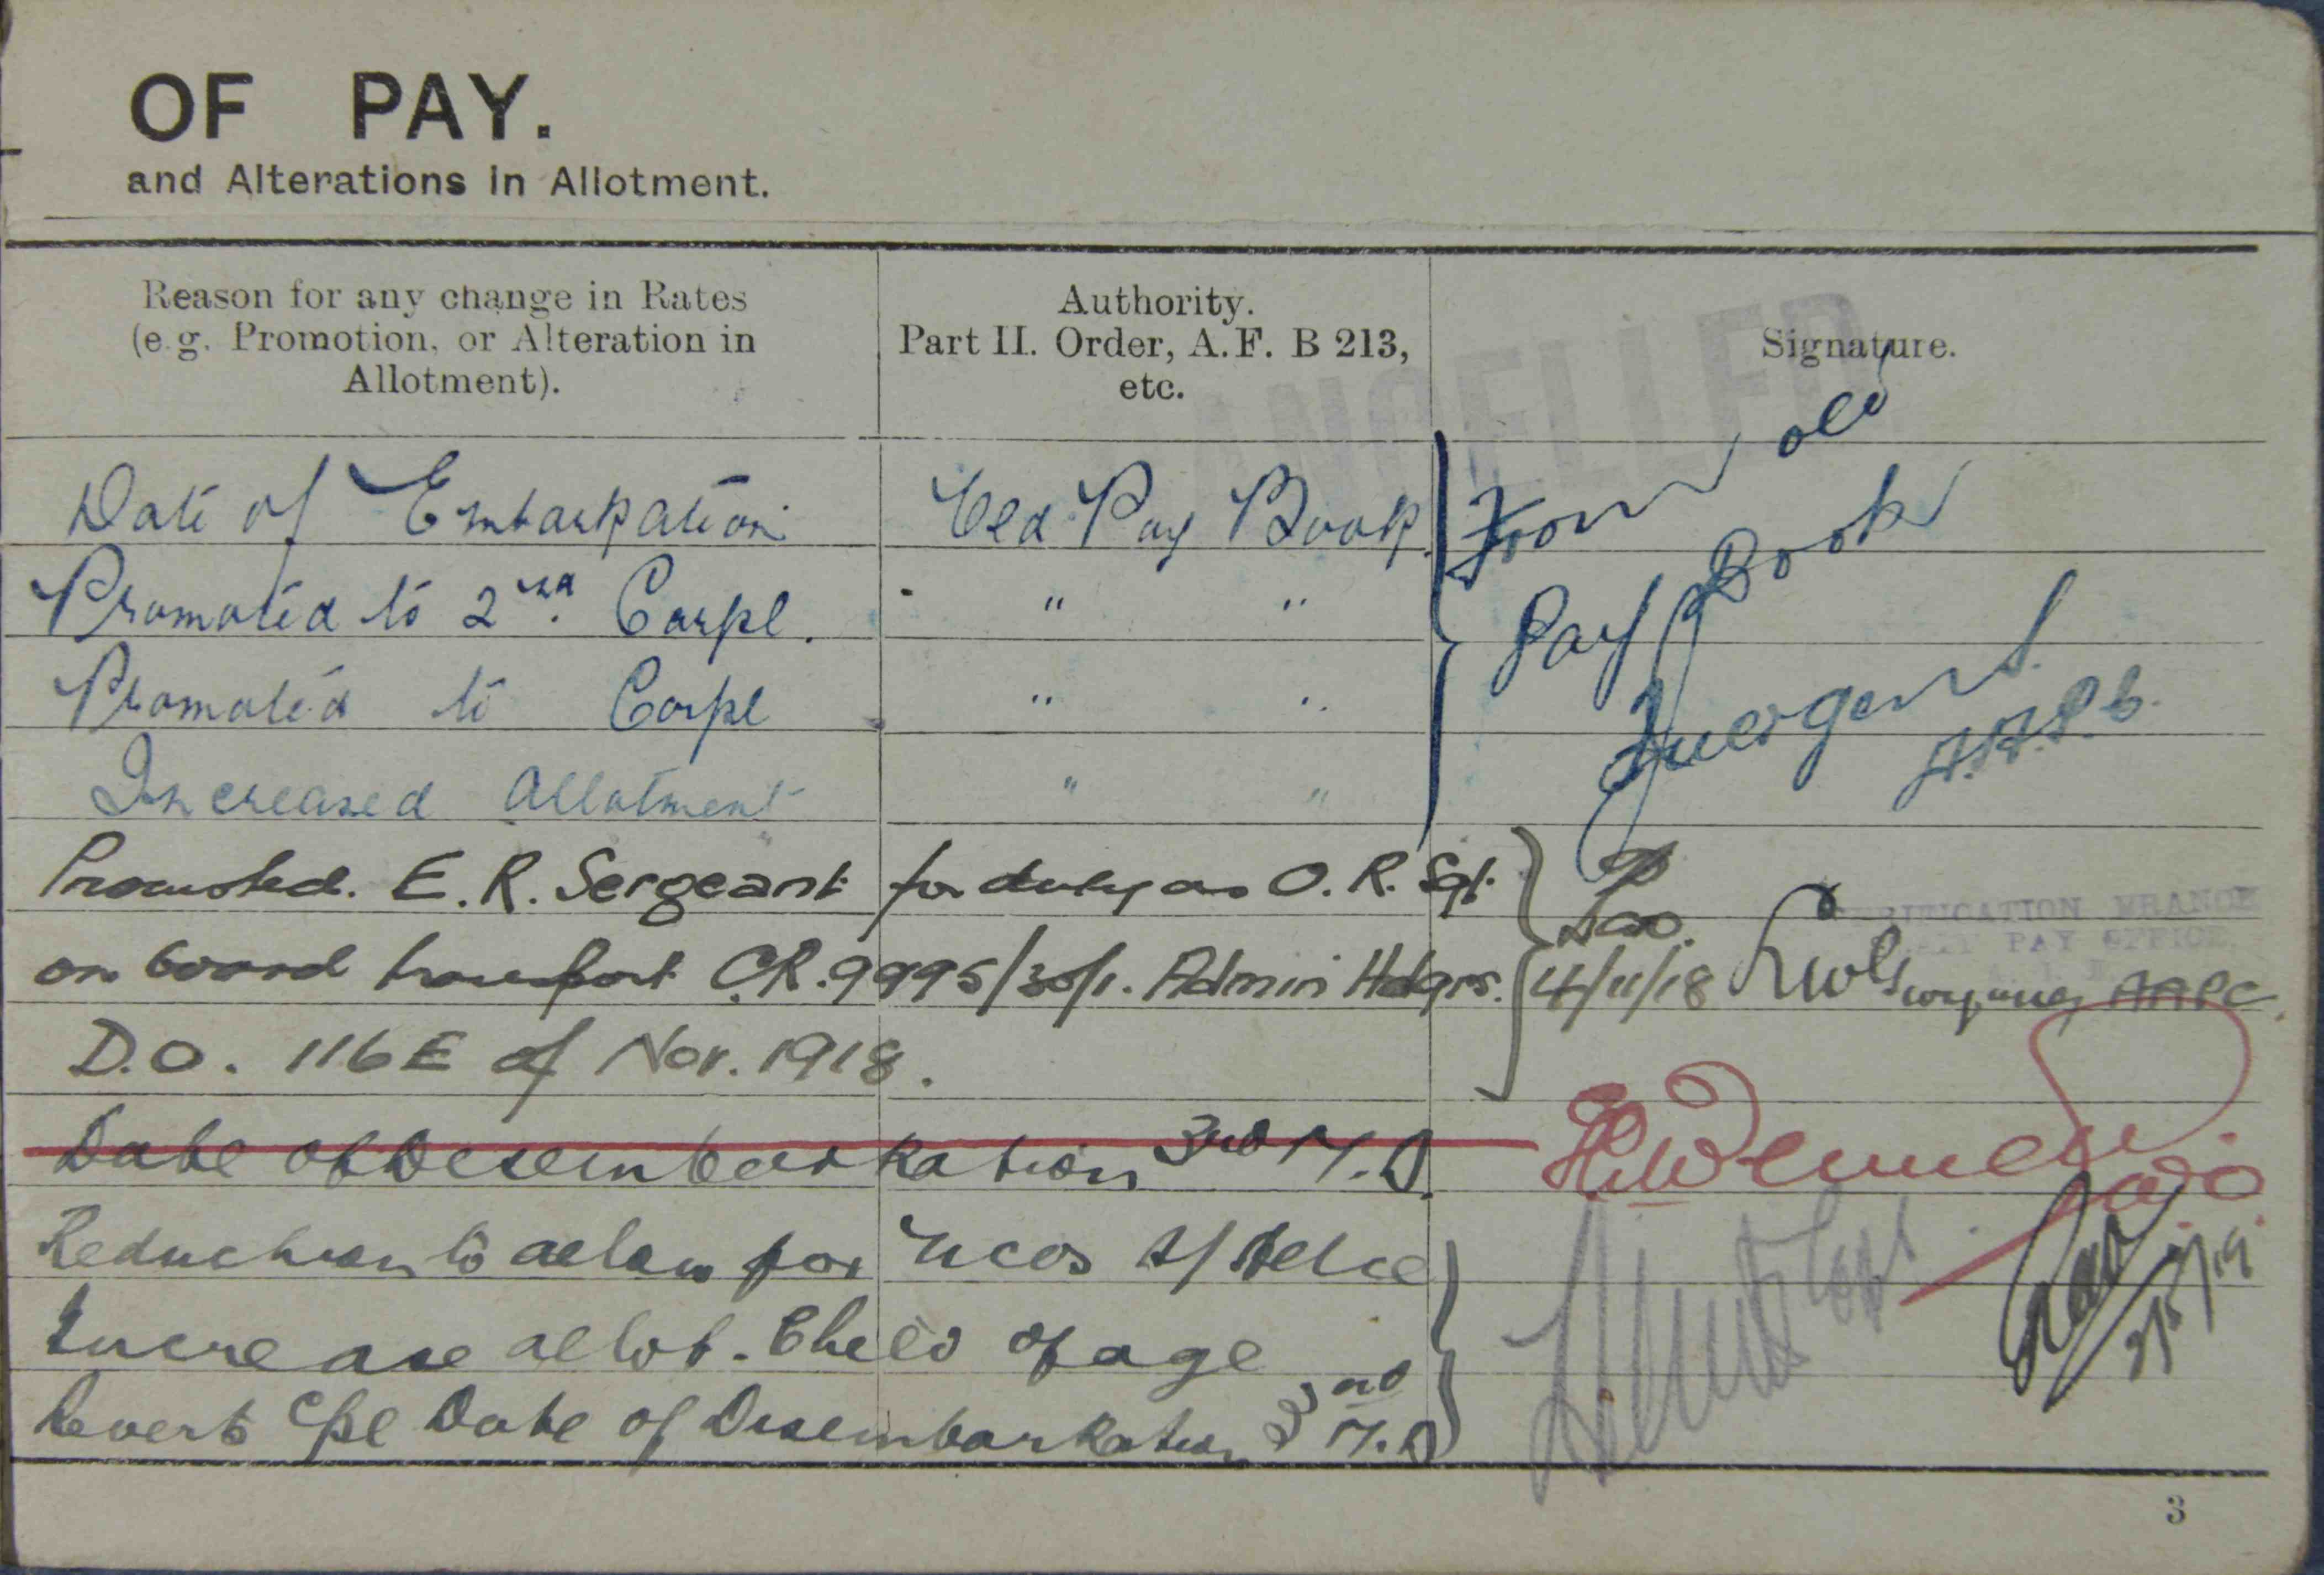 OF PAY.
and Alterations in Allotment.
Reason for any change in Rates
(e.g. Promotion, or Alteration in
Allotment).
Authority.
Part II. Order, A.F. B 213,
etc.
Signature.
CANCELLED
Date of Embarkation Old Pay Book
From old
Pay Book
Promoted to 2nd. Corpl. " "
Promoted to Corpl " "
Increased Allotment " "
Promoted. E.R. Sergeant for duty as O.R. Sgt.
on board transport C.R.9995/30/1. Admin Hdqrs. 4/11/18 AAPC
VERIFICATION BRANCH
PAY OFFICE
D.O. 116E of Nov. 1918.
Date of Disembarkation 3rd M.D.
Reduction to allow for
Increase allot. Child of age
Reverts Cpl Date of Disembarkation 3rd M.D
3